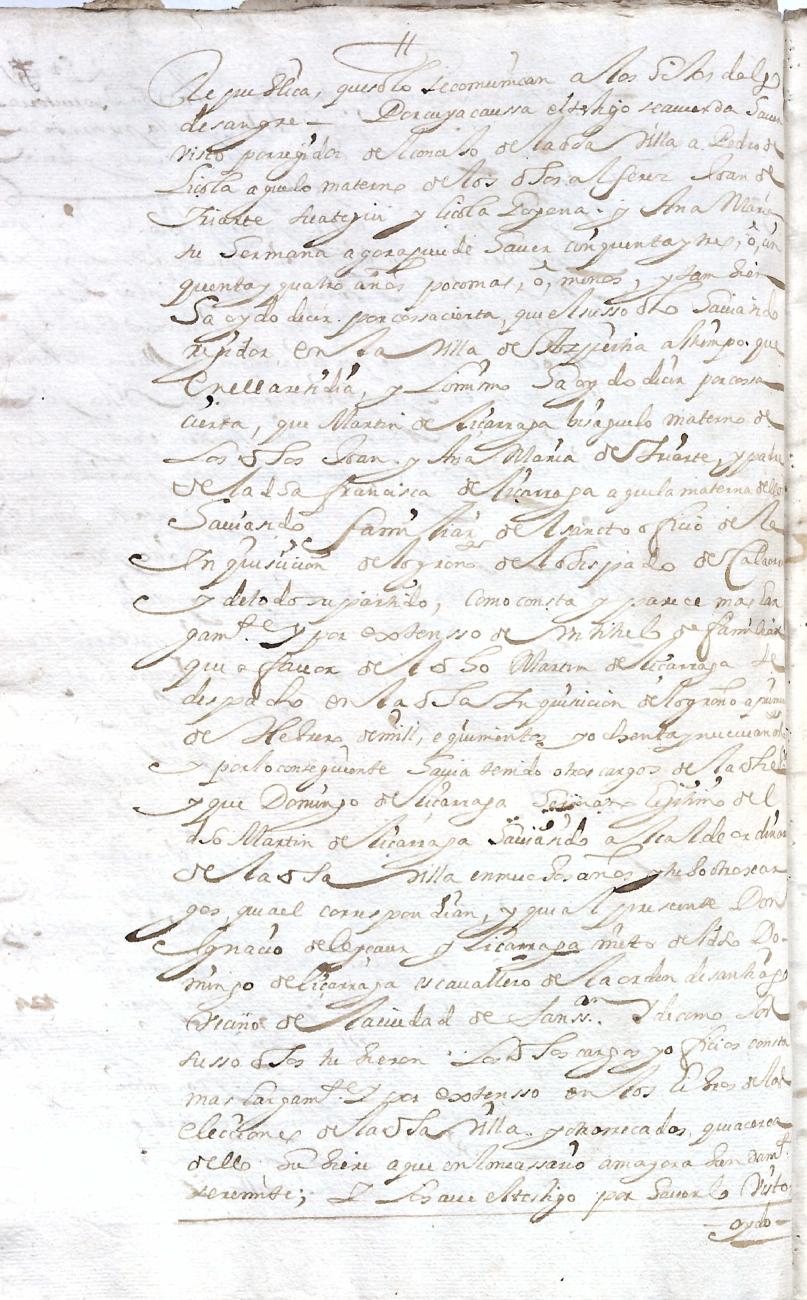 Republica, que solo se comunican a los hijos dalgo
de sangre — Por cuya caussa el testigo se acuerda hauer
visto por regidor del concejo de la dha Villa a Pedro de
Licola aguelo materno de los dhos alferez Joan de
Iriarte y Licola y Ana Maria
su hermana agora puede hauer cinquenta y tres, o, cin
quenta y quatro años poco mas, o, menos, y tambien
ha oydo decir por cossa cierta, que el susso dho hauia sido
regidor en la Villa de Azpeitia al tiempo que
en ella residia, y lo mismo ha oydo decir por cossa
cierta, que Martin de Liçarraga bisaguelo materno de
los dhos Joan y Ana Maria de Iriarte, y padre
de la dha francisca de Liçarraga aguela materna dellos
hauia sido familiar del sancto officio de la
Inquisicion de logroño del obispado de Calaorra
y de todo su partido, como consta y parece mas lar
gamte y por extensso del titulo de familiar
que a fauor del dho Martin de Liçarraga se
despacho en la dha Inquisicion de logroño a primero
de Hebrero de mill, e quinientos y ochenta y nueue años
y por lo consiguiente hauia tenido otros cargos de la dha
y que Domingo de Liçarraga hermano legitimo del
dho Martin de Liçarraga hauia sido alcalde ordinario
de la dha Villa en muchos años y tubo otros car
gos, que a el correspondian, y que al presente Don
Ignacio de y Liçarraga nieto del dho Do-
mingo de Liçarraga es cauallero de la orden de santiago
vecino de la ciudad de Sanss.an Y de como los
susso dhos tubieron los dhos cargos y officios consta
mas largamte y por extensso en los libros de las
elecciones de la dha Villa y otros recados, que acerca
dello hubiere a que en lo necessario a mayor abundamto
se remite; Y lo saue el testigo por hauerlo visto
— oydo —